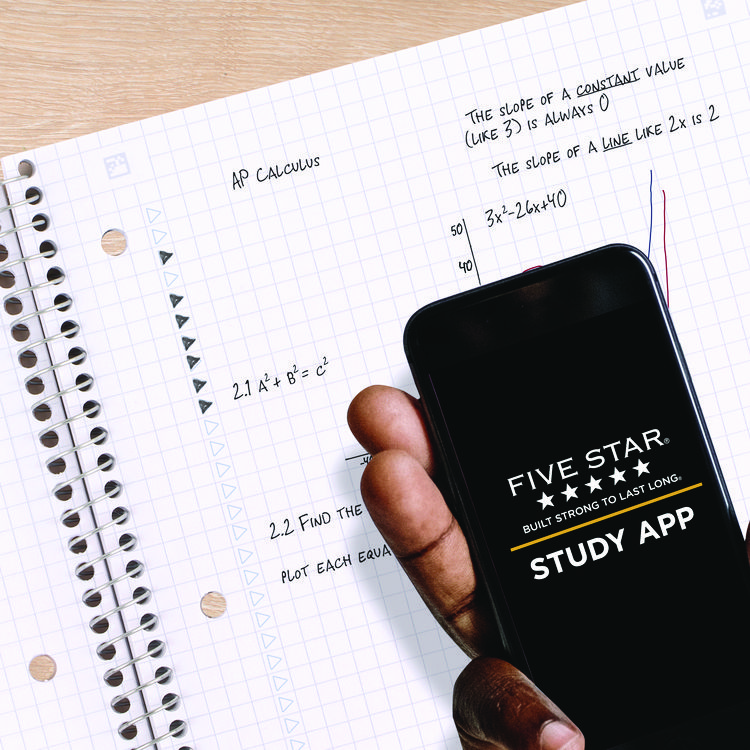 THE SLOPE OF A CONSTANT VALUE
(LIKE 3) IS ALWAYS 0
THE SLOPE OF A LINE LIKE 2x IS 2
AP CALCULUS
3x²-26x+40
50
40
2.1 A² + B² = C²
2.2 FIND THE
PLOT EACH EQUA
FIVE STAR®
BUILT STRONG TO LAST LONG®
STUDY APP